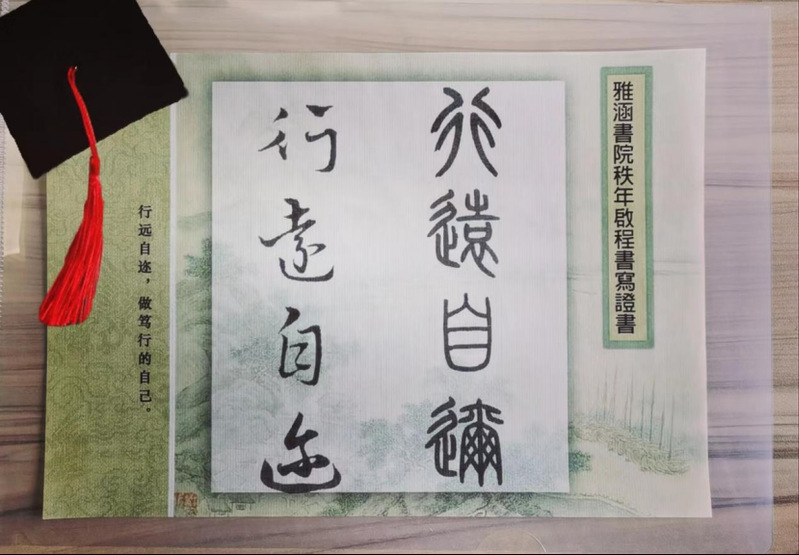 雅涵書院秩年啟程書寫證書
行遠自邇
行遠自迩
行远自迩，做笃行的自己。